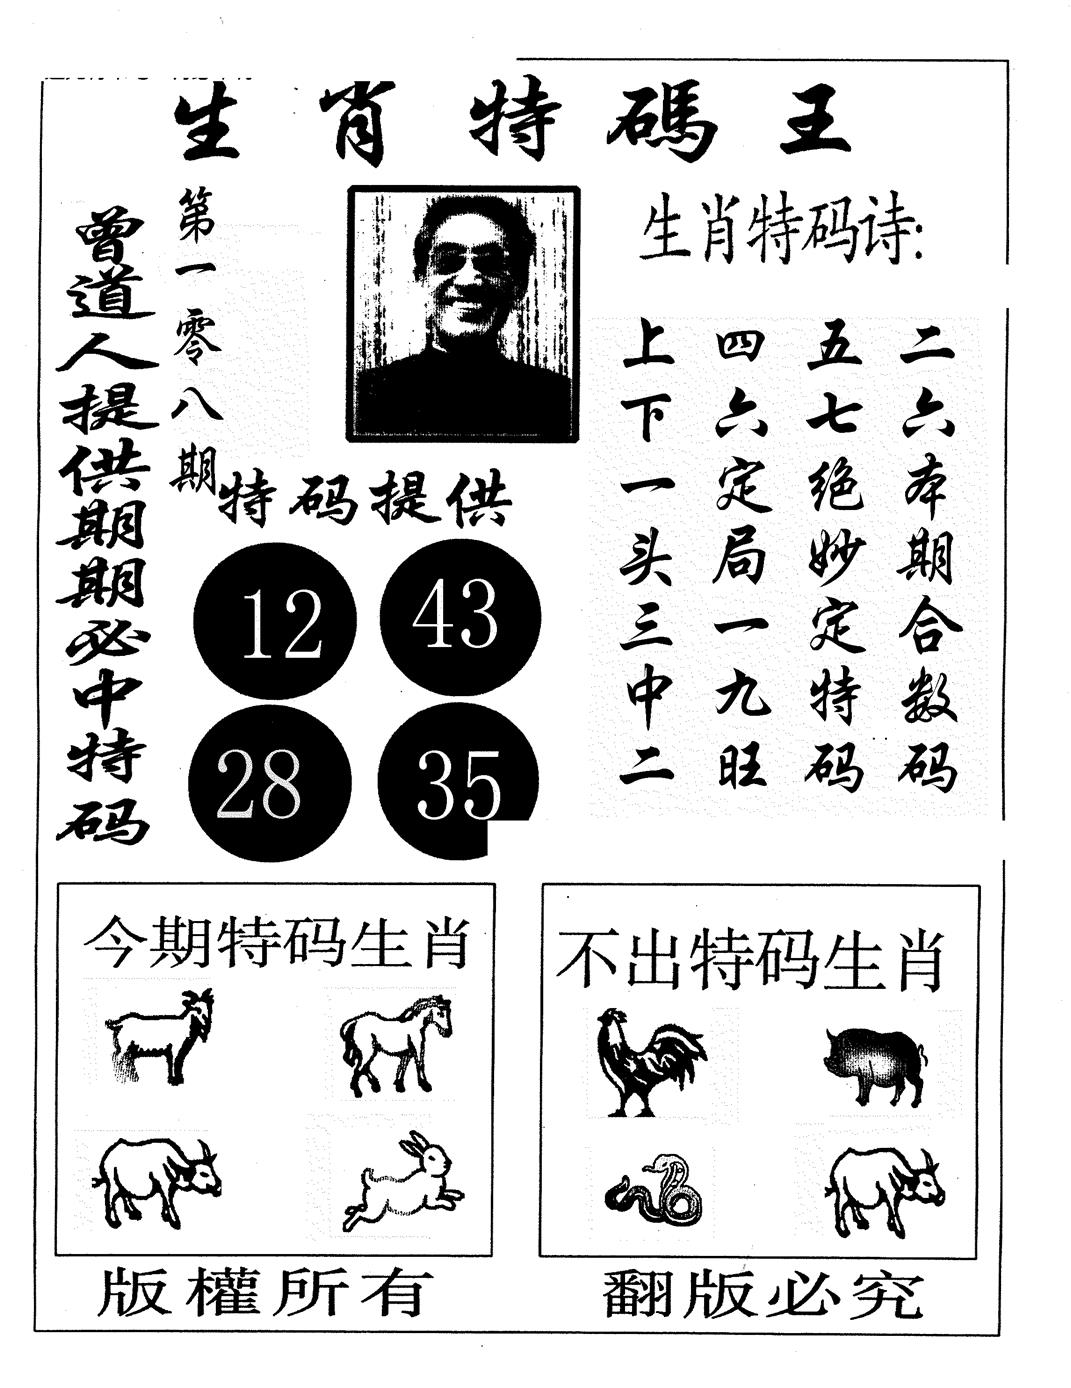 生肖特碼王
曾道人提供期期必中特码
第一零八期
生肖特码诗:
二六本期合数码
五七绝妙定特码
四六定局一九旺
上下一头三中二
特码提供
12 43
28 35
今期特码生肖
不出特码生肖
版權所有
翻版必究